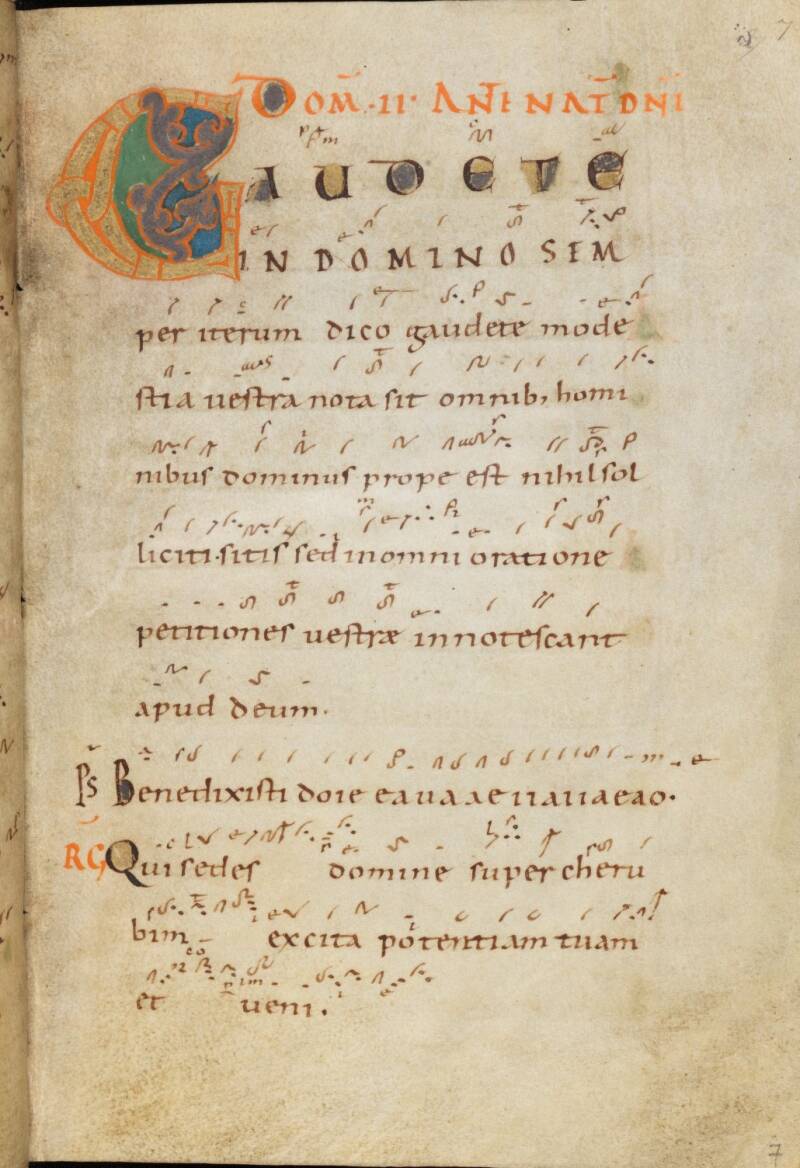 7
DOM̅ · II · ANTE NAT̅ DN̅I
GAUDETE
IN DOMINO SEM
per iterum dico gaudete mode
stia uestra nota sit omnib, homi
nibus dominus prope est nihil sol
liciti sitis sed in omni oratione
petitiones uestræ innotescant
apud deum.
Ps Benedixisti dn̅e ea ua ae ii a ii a e a o.
RG Qui sedes domine super cheru
bim excita potentiam tuam
et ueni.
7